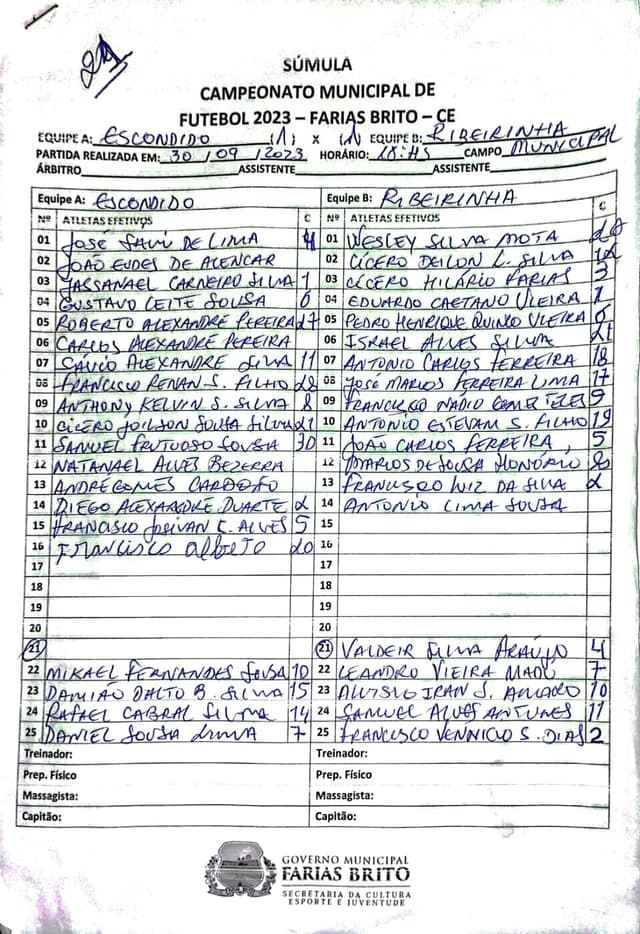 21
SÚMULA
CAMPEONATO MUNICIPAL DE
FUTEBOL 2023 – FARIAS BRITO – CE
EQUIPE A: ESCONDIDO (1) X (1) EQUIPE B: RIBEIRINHA
PARTIDA REALIZADA EM: 30 / 09 / 2023 HORÁRIO: CAMPO MUNICIPAL
ÁRBITRO ASSISTENTE ASSISTENTE
Equipe A: ESCONDIDO Equipe B: RIBEIRINHA
Nº ATLETAS EFETIVOS C Nº ATLETAS EFETIVOS C
01 JOSÉ SAVI DE LIMA 01 WESLEY SILVA MOTA
02 JOÃO EUDES DE ALENCAR 02 CÍCERO DEILON L. SILVA
03 CARNEIRO SILVA 1 03 CÍCERO HILÁRIO FARIAS 3
04 GUSTAVO LEITE SOUSA 6 04 EDUARDO CAETANO VIEIRA 1
05 ROBERTO ALEXANDRE PEREIRA 27 05 PEDRO HENRIQUE VIEIRA 6
06 CARLOS ALEXANDRE PEREIRA 06 ISRAEL ALVES SILVA 21
07 SÁVIO ALEXANDRE SILVA 11 07 ANTONIO CARLOS FERREIRA 18
08 FRANCISCO RENAN S. FILHO 28 08 JOSÉ MARCOS FERREIRA LIMA 17
09 ANTHONY KELVIN S. SILVA 8 09 FRANCISCO NADIO GOMES TELES 9
10 CÍCERO JOILSON SOUSA SILVA 21 10 ANTONIO ESTEVAM S. FILHO 19
11 SAMUEL FRUTUOSO SOUSA 30 11 JOÃO CARLOS FERREIRA, 5
12 NATANAEL ALVES BEZERRA 12 MARLOS DE SOUSA HONÓRIO
13 ANDRÉ GOMES CARDOSO 13 FRANCISCO LUIZ DA SILVA 2
14 DIEGO ALEXANDRE DUARTE 2 14 ANTONIO LIMA SOUSA
15 FRANCISCO JOSIVAN C. ALVES 5 15
16 Francisco Alberto 20 16
17 17
18 18
19 19
20 20
21 21 VALDEIR SILVA ARAÚJO 4
22 MIKAEL FERNANDES SOUSA 10 22 LEANDRO VIEIRA 7
23 DAMIÃO DALTO B. SILVA 15 23 ALUISIO IRAN S. AMARO 10
24 RAFAEL CABRAL SILVA 14 24 SAMUEL ALVES ANTUNES 11
25 DANIEL SOUSA LIMA 7 25 FRANCISCO VENNICIO S. DIAS 2
Treinador: Treinador:
Prep. Físico Prep. Físico
Massagista: Massagista:
Capitão: Capitão:
GOVERNO MUNICIPAL
FARIAS BRITO
SECRETARIA DA CULTURA
ESPORTE E JUVENTUDE